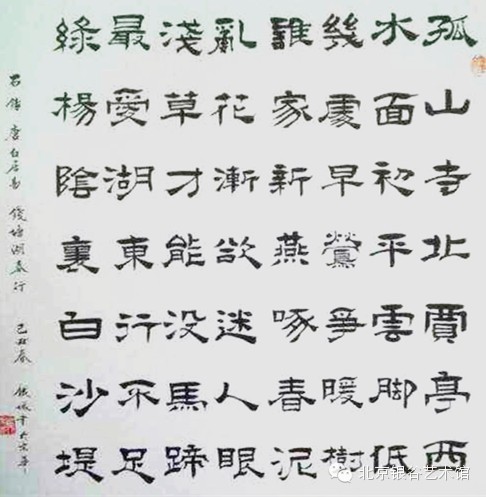 孤山寺北賈亭西
水面初平雲脚低
幾處早鶯爭暖樹
誰家新燕啄春泥
亂花漸欲迷人眼
淺草才能没馬蹄
最愛湖東行不足
綠楊陰裏白沙堤
右錄 唐白居易 錢塘湖春行 己丑春
北京银谷艺术馆